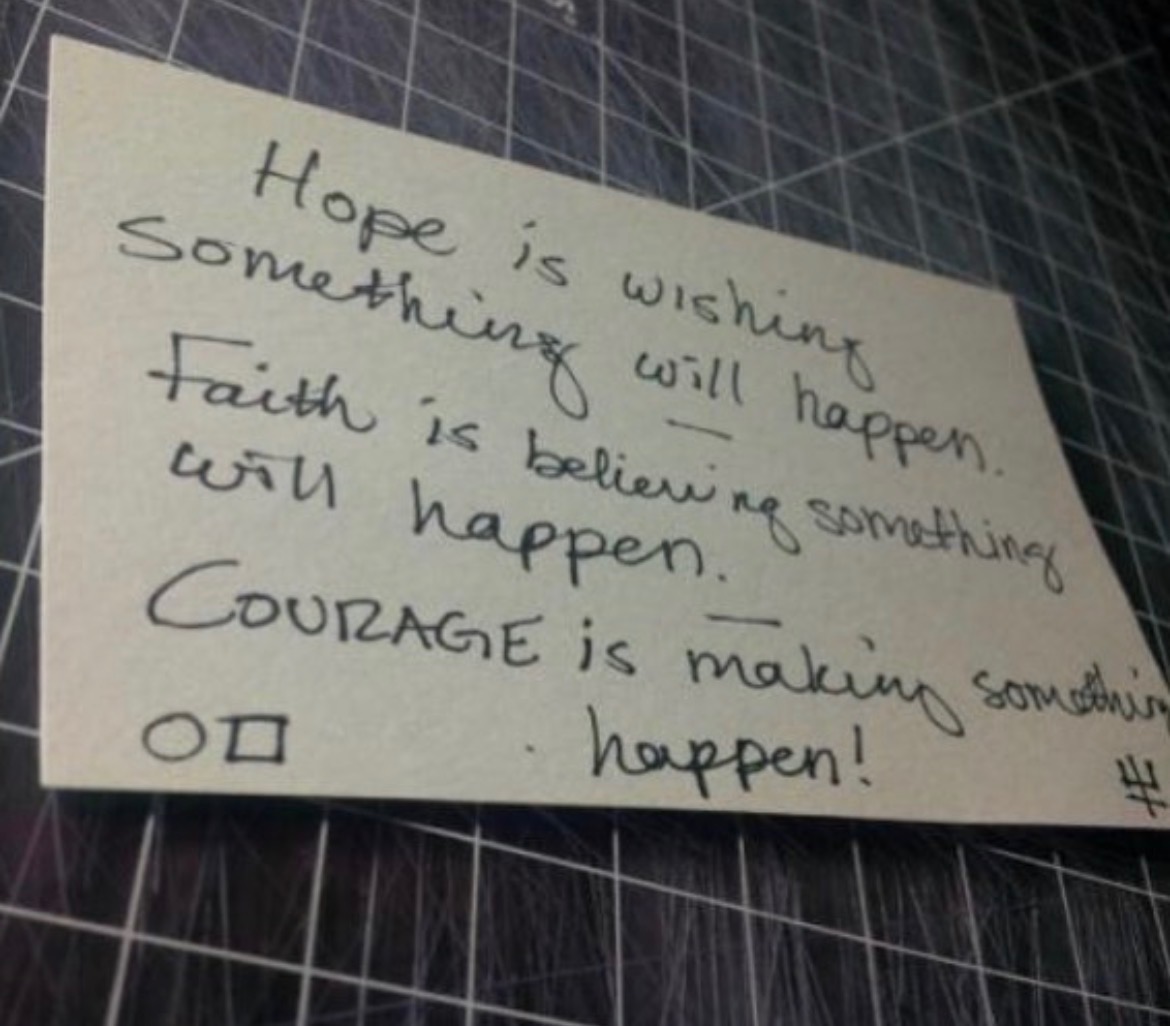 Hope is wishing
Something will happen.
—
Faith is believing something
will happen.
—
COURAGE is making somethin
happen!